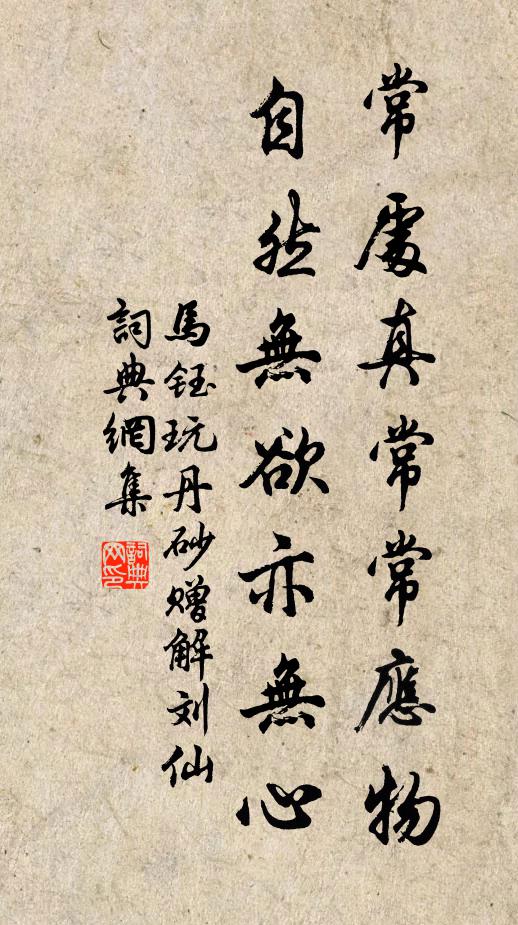 常處真常常應物
自然無欲亦無心
馬鈺玩丹砂赠解刘仙
詞典網集
詞典
网印